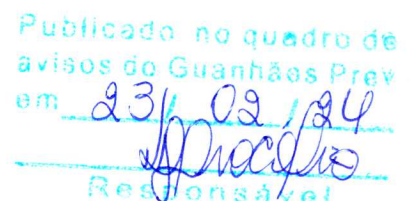 Publicado no quadro de
avisos do Guanhães Prev
em 23/02/24
Responsável